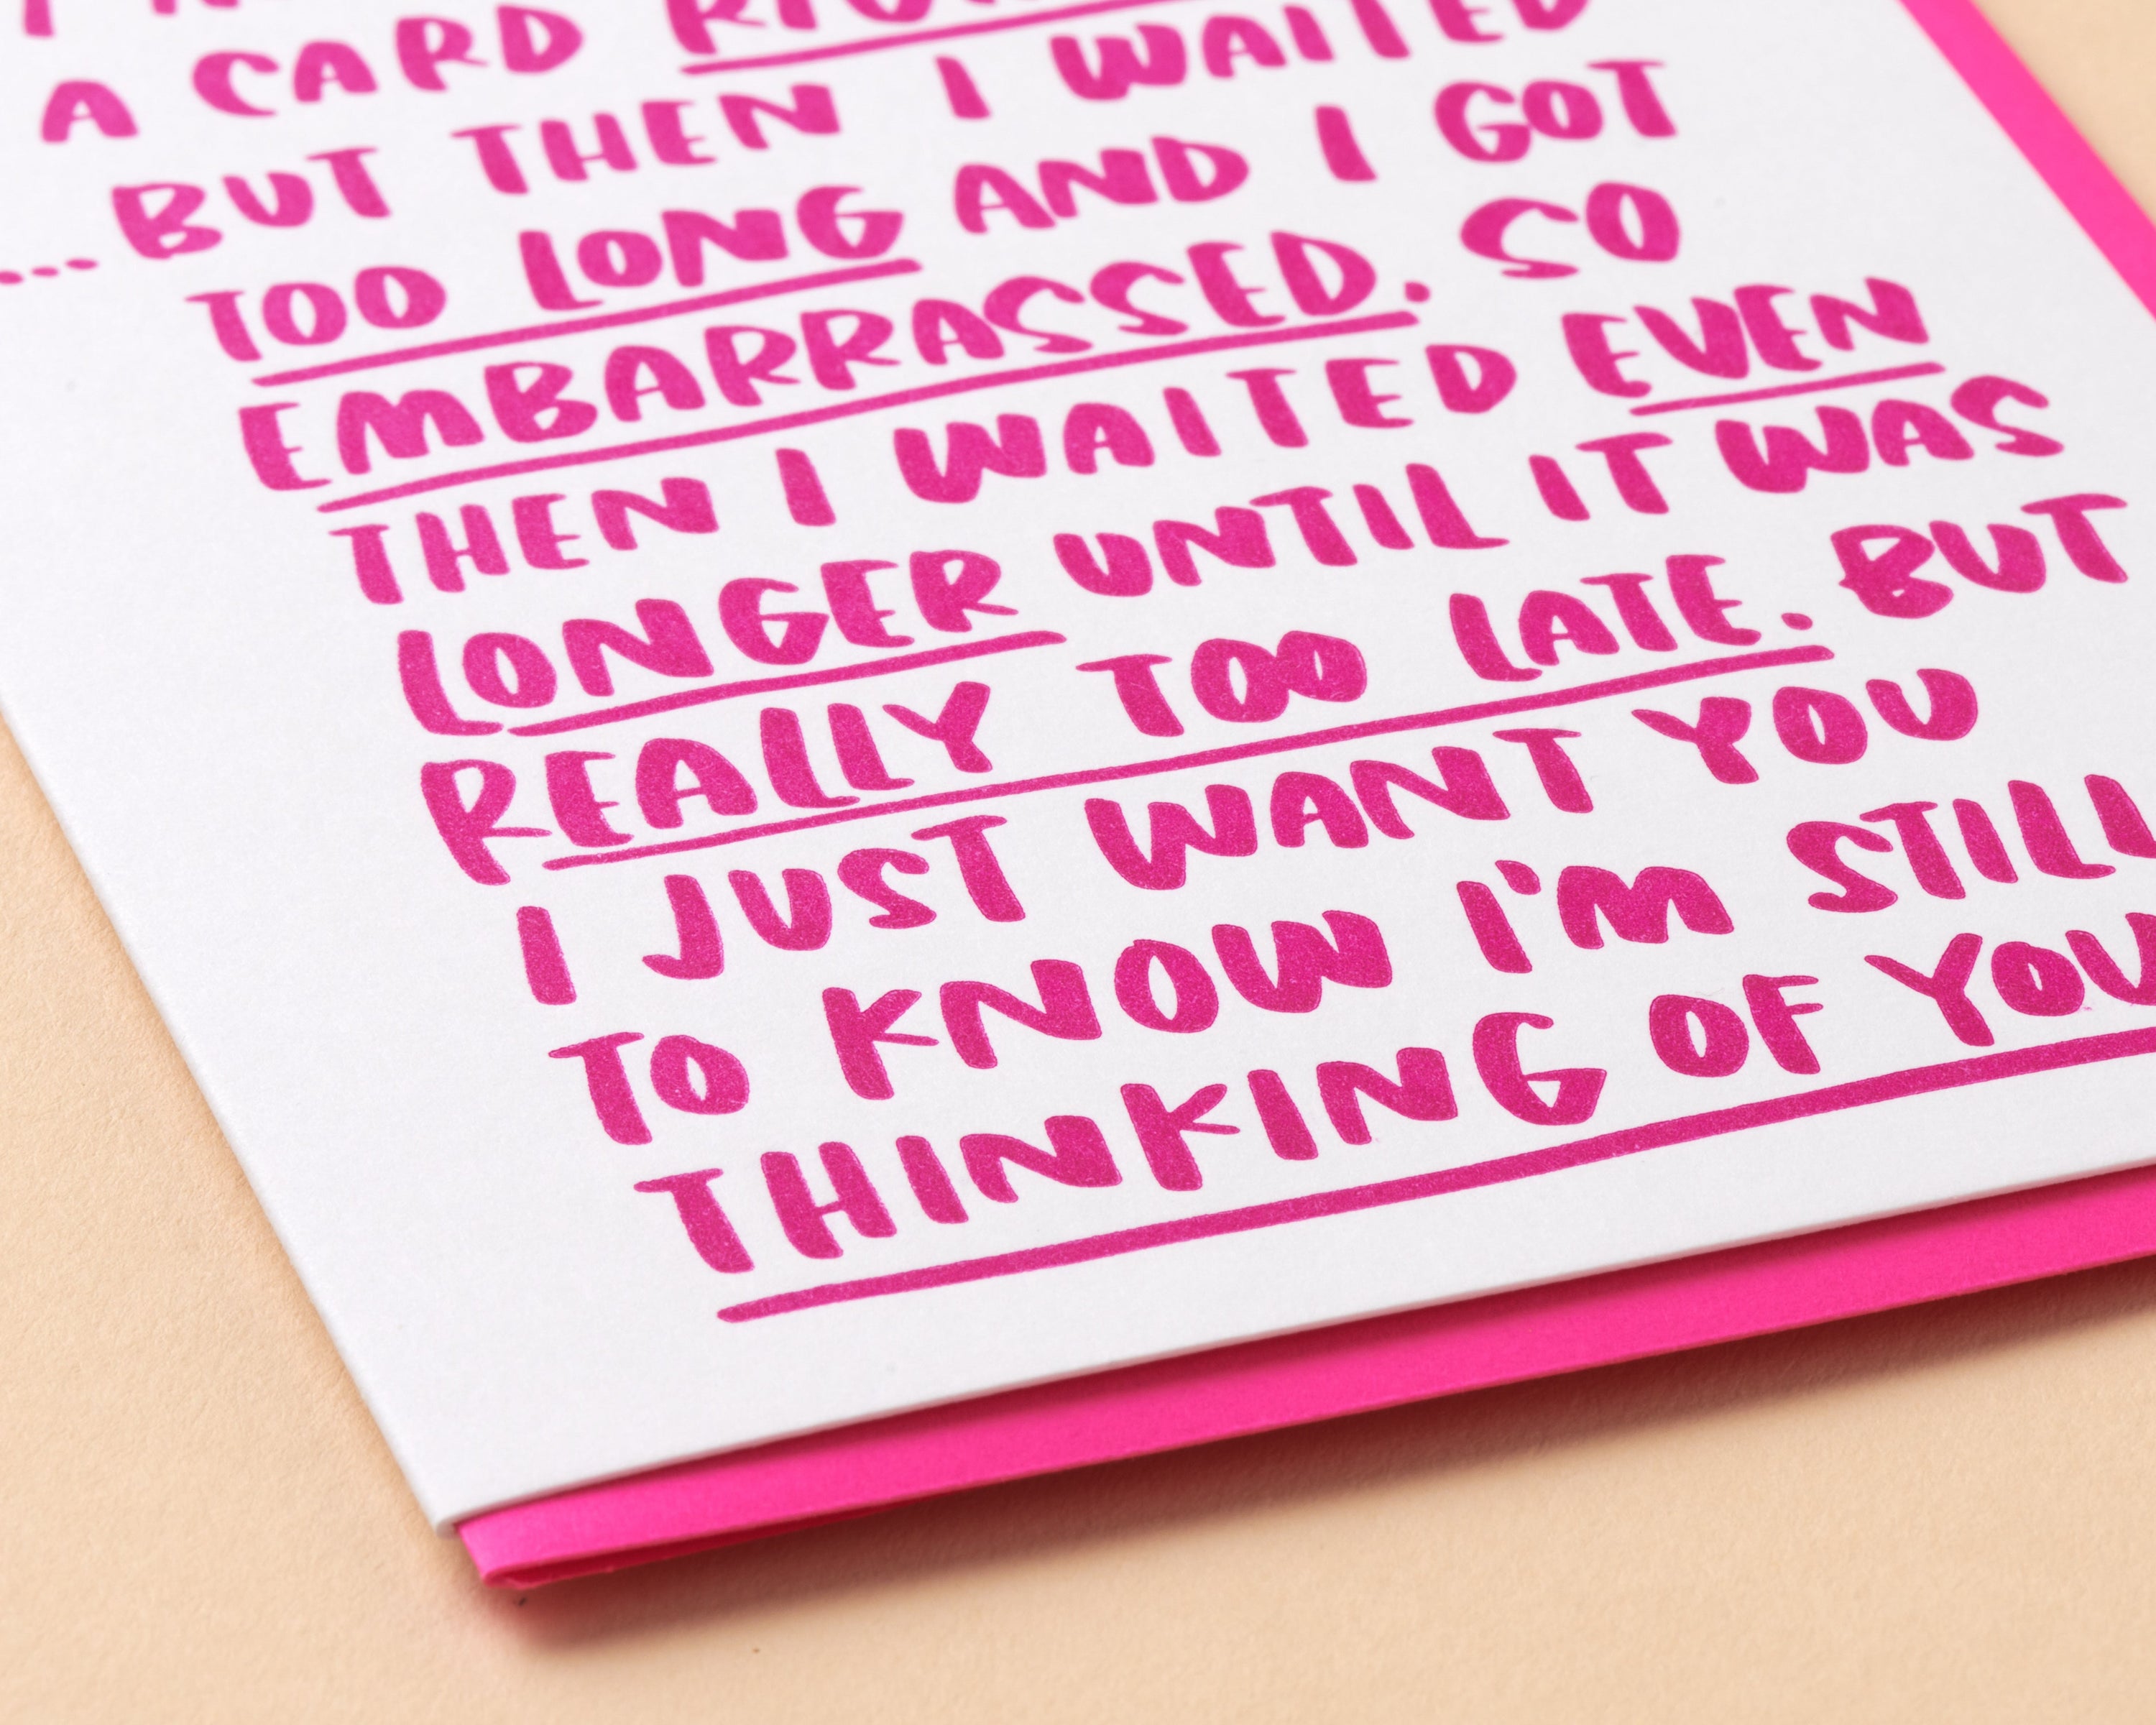 A CARD
...BUT THEN I WAITED
TOO LONG AND I GOT
EMBARRASSED. SO
THEN I WAITED EVEN
LONGER UNTIL IT WAS
REALLY TOO LATE. BUT
I JUST WANT YOU
TO KNOW I'M STILL
THINKING OF YOU